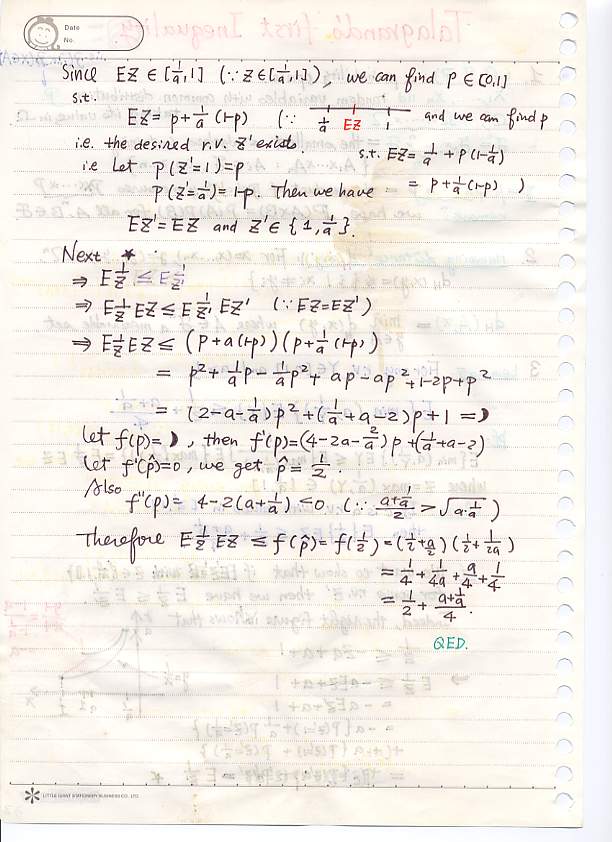 Date
No.
Since EZ ∈ [1/a, 1] (∵ Z ∈ [1/a, 1]), we can find p ∈ [0,1]
s.t.
EZ = p + 1/a (1-p) (∵ 1/a EZ 1 and we can find p
i.e. the desired r.v. Z' exists. s.t. EZ = 1/a + p(1-1/a)
i.e Let P(Z'=1)=p = p + 1/a (1-p) )
P(Z'=1/a)=1-p. Then we have
EZ' = EZ and Z' ∈ {1, 1/a}.
Next *
⇒ E 1/Z ≤ E 1/Z'
⇒ E 1/Z EZ ≤ E 1/Z' EZ' (∵ EZ = EZ')
⇒ E 1/Z EZ ≤ (p + a(1-p)) (p + 1/a (1-p))
= p² + 1/a p - 1/a p² + ap - ap² + 1-2p+p²
= (2-a-1/a) p² + (1/a + a - 2) p + 1 =)
Let f(p) = ), then f'(p) = (4-2a-2/a) p + (1/a + a - 2)
Let f'(p̂)=0, we get p̂ = 1/2.
Also
f''(p) = 4-2(a+1/a) ≤ 0 (∵ (a+1/a)/2 > √(a·1/a) )
Therefore E 1/Z EZ ≤ f(p̂) = f(1/2) = (1/2 + a/2) (1/2 + 1/2a)
= 1/4 + 1/4a + a/4 + 1/4
= 1/2 + (a+1/a)/4.
QED.
LITTLE GIANT STATIONERY BUSINESS CO., LTD.